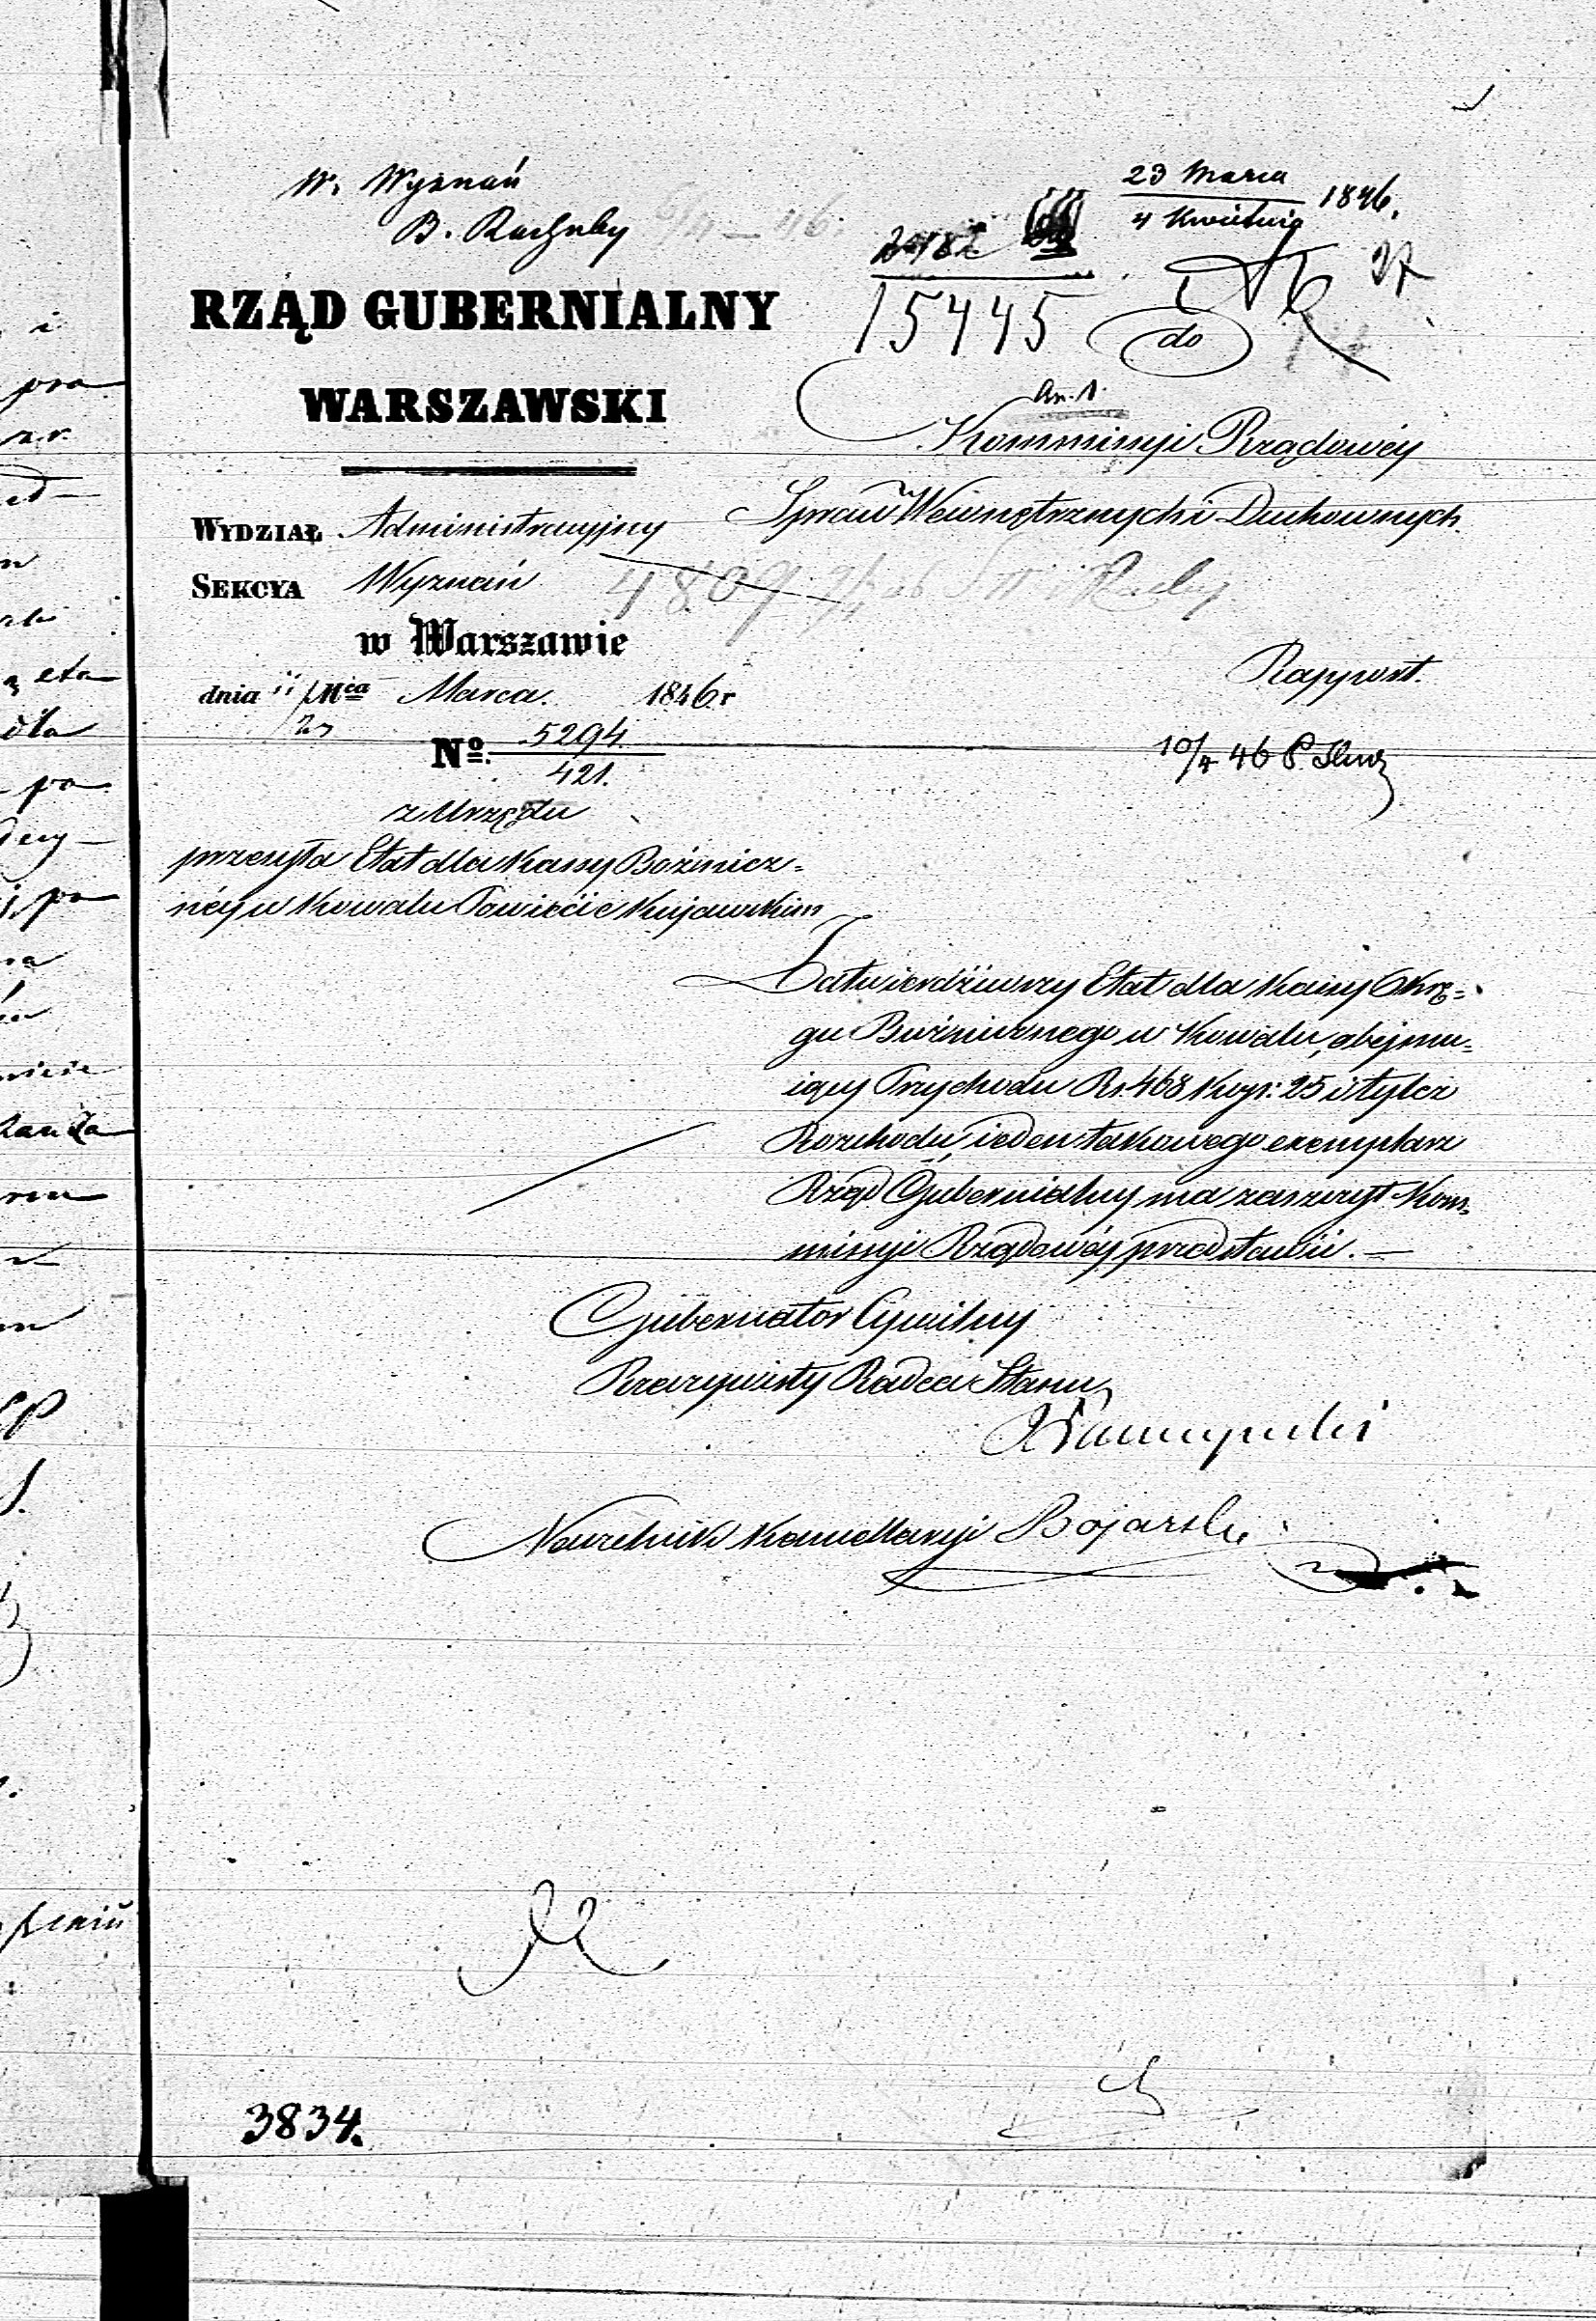 W. Wyznań
B. Rachuby
23 Marca
4 Kwietnia 1846.
15445
27
do
An. 1.
RZĄD GUBERNIALNY
WARSZAWSKI
Kommissyi Rządowéy
Spraw Wewnętrznych i Duchownych
WYDZIAŁ Administracyjny
SEKCYA Wyznań
4809
w Warszawie
Rapport.
dnia 11/23 Mca Marca. 1846 r
No. 5294.
421.
10/4 46
z Urzędu
przesyła Etat dla Kassy Bóżnicz-
néy w Kowalu Powiecie Kujawskim
Zatwierdziwszy Etat dla Kassy Okrę-
gu Bóżnicznego w Kowalu, obejmu-
iący Przychodu Rs. 468 Kop: 25 i tyleż
Rozchodu, ieden takowego exemplarz
Rząd Gubernialny ma zaszczyt Kom-
missyi Rządowéy przedstawić. —
Gubernator Cywilny
Rzeczywisty Radca Stanu
Naczelnik Kancellaryi Bojarski
3834.